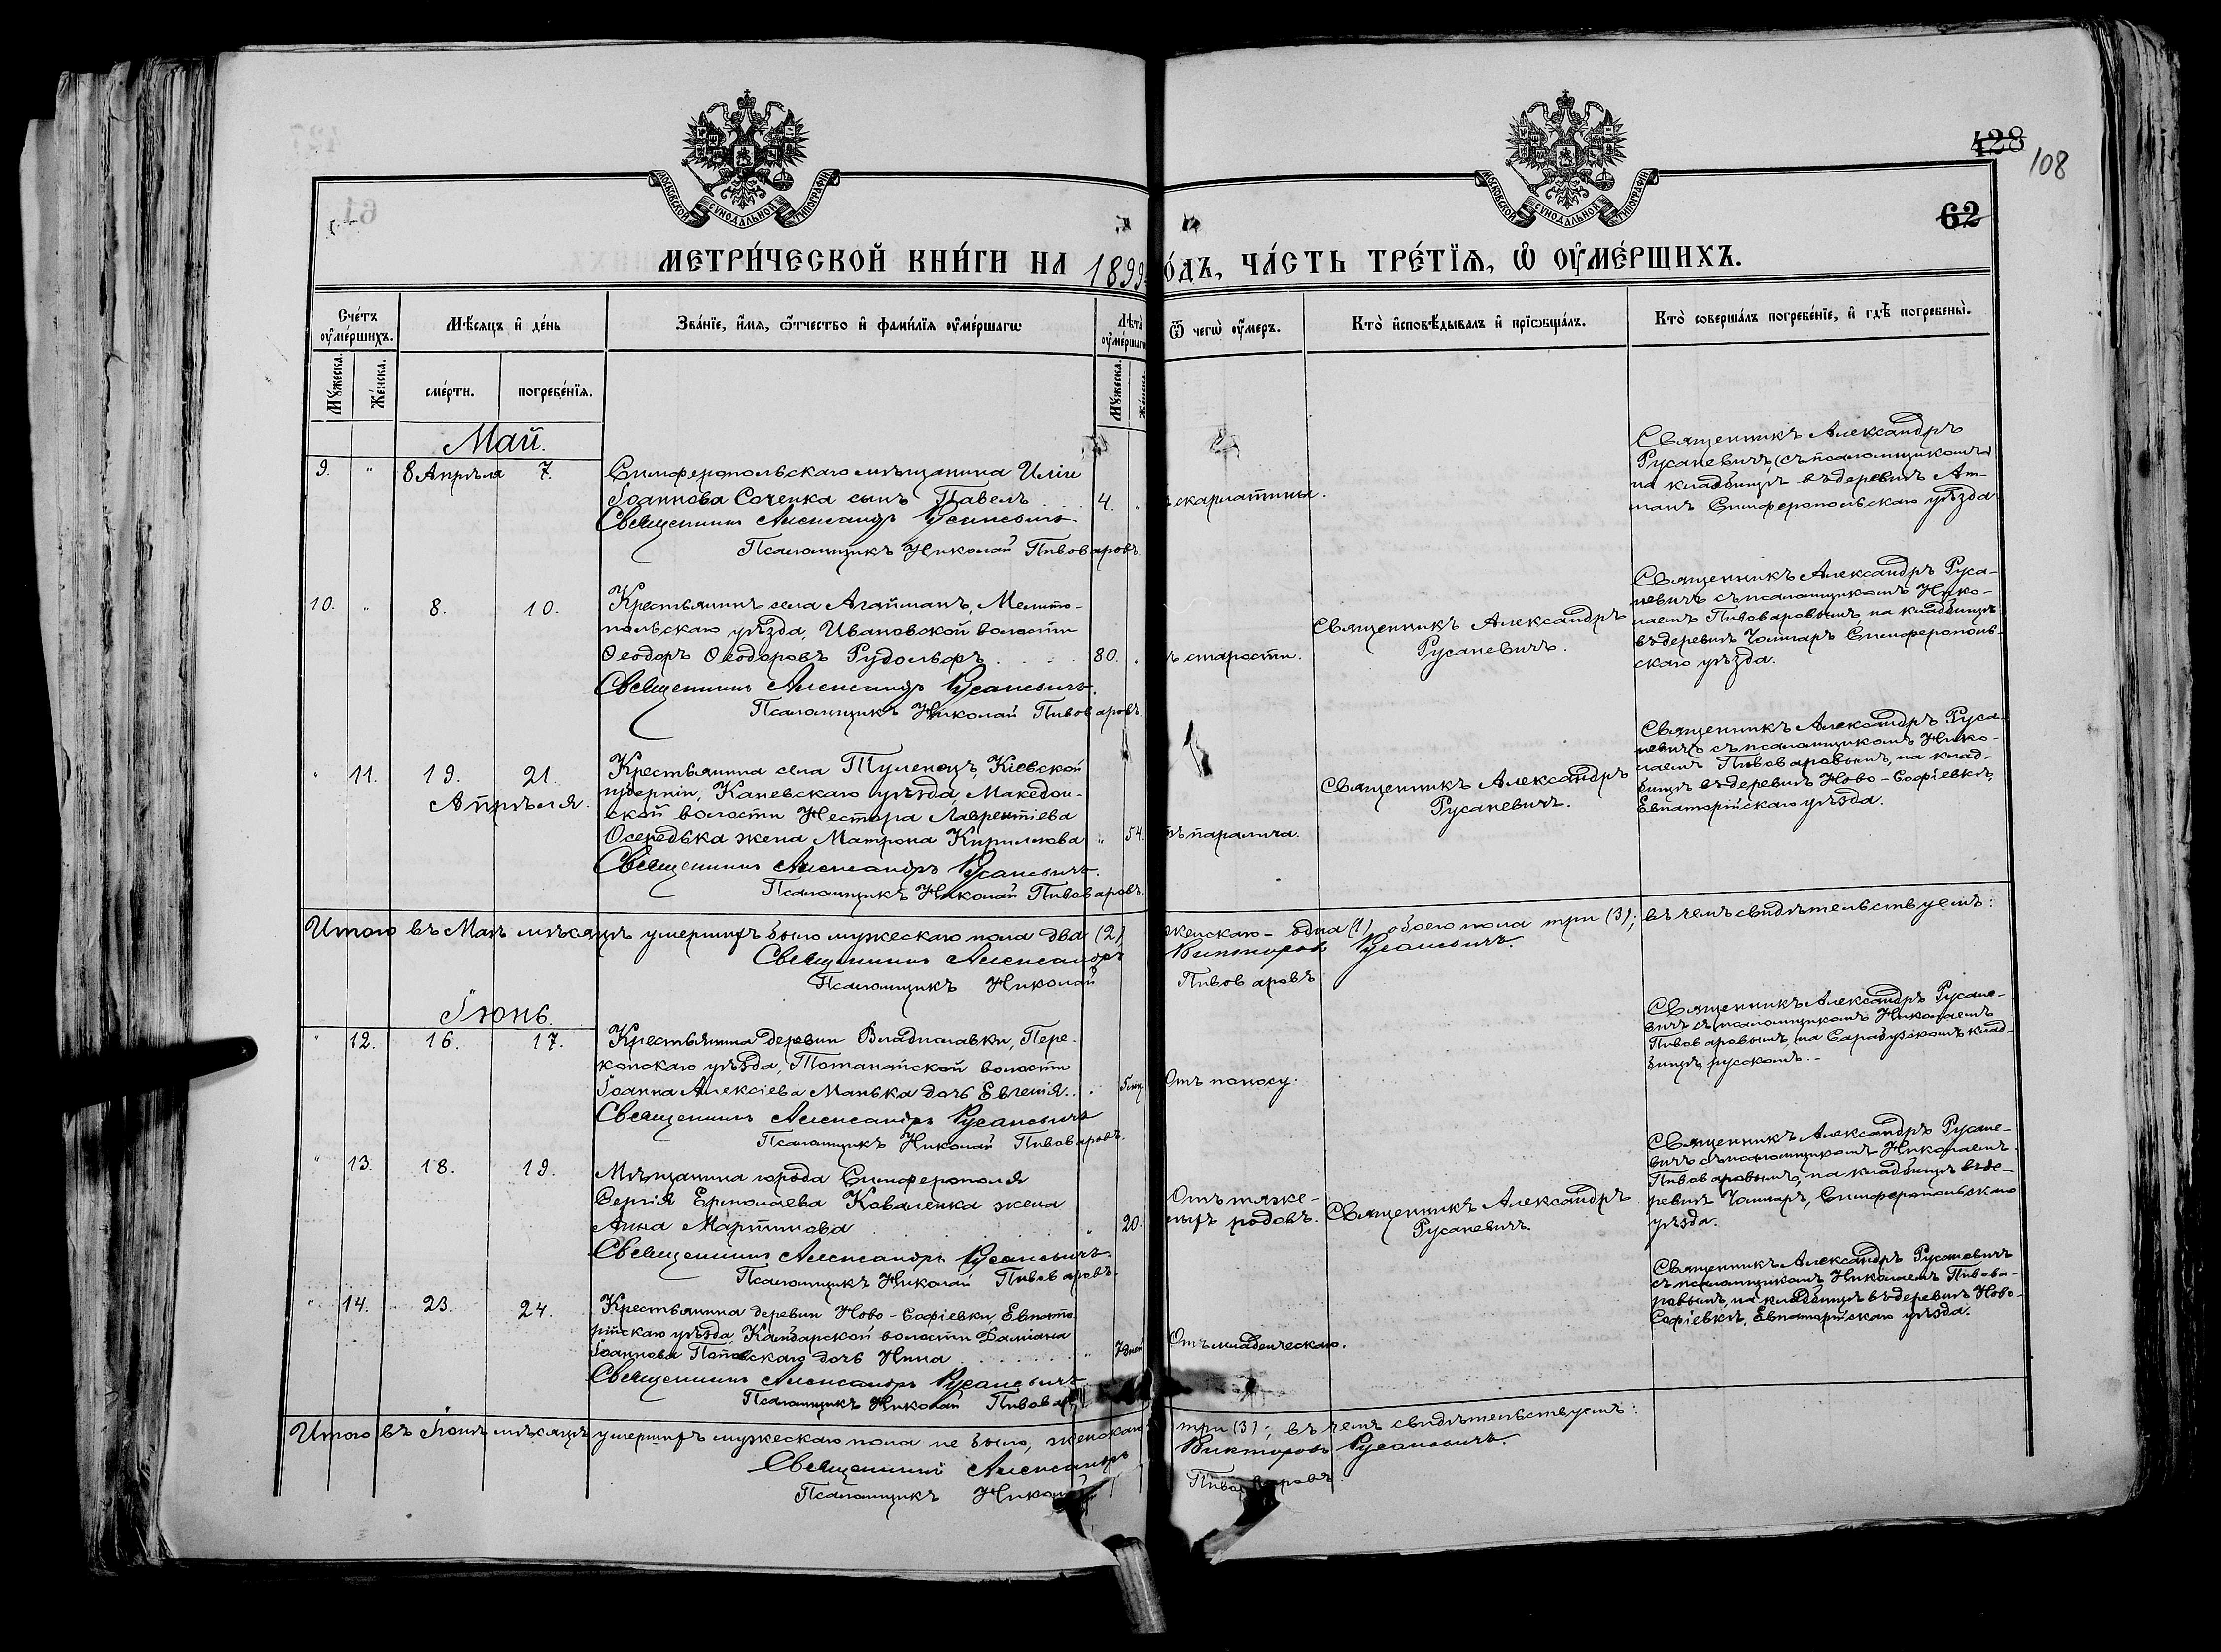 428
108
62
МОСКОВСКОЙ СѴНОДАЛЬНОЙ ТИПОГРАФІИ
МОСКОВСКОЙ СѴНОДАЛЬНОЙ ТИПОГРАФІИ
МЕТРИ́ЧЕСКОЙ КНИ́ГИ НА 1899 ГО́ДЪ, ЧА́СТЬ ТРЕ́ТІѦ, Ѡ҆ ОУ҆МЕ́РШИХЪ.
Сче́тъ оу҆ме́ршихъ.
Мѣ́сяцъ и҆ де́нь
Зва́нїе, и҆́мя, ѻ҆́тчество и҆ фами́лїя оу҆ме́ршагѡ
Лѣ́та оу҆ме́ршагѡ
Ѿ чегѡ̀ оу҆́меръ.
Кто̀ и҆сповѣ́дывалъ и҆ прїѡбща́лъ.
Кто̀ соверша́лъ погребе́нїе, и҆ гдѣ̀ погребены̀.
Мꙋ́жеска. Же́нска.
сме́рти. погребе́нїя.
Мꙋ́жеска. Же́нска.
Май.
9. " 8 Апрѣля 7.
Симферопольскаго мѣщанина Иліи
Іоаннова Соченка сынъ Павелъ 4. "
Священникъ Александръ Русаневичъ.
Псаломщикъ Николай Пивоваровъ.
скарлатины.
Священникъ Александръ
Русаневичъ (съ псаломщикомъ)
на кладбищѣ въ деревнѣ Ат-
манъ Симферопольскаго уѣзда
10. " 8. 10.
Крестьянинъ села Агайманъ, Мелито-
польскаго уѣзда, Ивановской волости
Ѳеодоръ Ѳеодоровъ Рудольфъ 80. "
Священникъ Александръ Русаневичъ.
Псаломщикъ Николай Пивоваровъ.
ъ старости.
Священникъ Александръ
Русаневичъ.
Священникъ Александръ Руса-
невичъ съ псаломщикомъ Нико-
лаемъ Пивоваровымъ на кладбищѣ
въ деревнѣ Чонгаръ Симферополь-
скаго уѣзда.
" 11. 19. 21.
Апрѣля.
Крестьянина села Тулинецъ, Кіевской
губерніи, Каневскаго уѣзда, Македон-
ской волости Нестора Лаврентіева
Осередька жена Матрона Кириллова " 54.
Священникъ Александръ Русаневичъ.
Псаломщикъ Николай Пивоваровъ.
тъ паралича.
Священникъ Александръ
Русаневичъ.
Священникъ Александръ Руса-
невичъ съ псаломщикомъ Нико-
лаемъ Пивоваровымъ, на клад-
бищѣ въ деревнѣ Ново-Софіевкѣ,
Евпаторійскаго уѣзда.
Итого въ Маѣ мѣсяцѣ умершихъ было мужескаго пола два (2), женскаго - одна (1) обоего пола три (3); въ чемъ свидѣтельствуемъ:
Священникъ Александръ Викторовъ Русаневичъ.
Псаломщикъ Николай Пивоваровъ
Іюнь.
" 12. 16. 17.
Крестьянина деревни Владиславки, Пере-
копскаго уѣзда, Тотанайской волости
Іоанна Алексіева Манька дочь Евгенія. 5 мц.
Священникъ Александръ Русаневичъ
Псаломщикъ Николай Пивоваровъ.
Отъ поносу.
Священникъ Александръ Русане-
вичъ съ псаломщикомъ Николаемъ
Пивоваровымъ, на Сарабузскомъ клад-
бищѣ русскомъ.
" 13. 18. 19.
Мѣщанина города Симферополя
Сергія Ермолаева Коваленка жена
Анна Мартинова " 20.
Священникъ Александръ Русаневичъ.
Псаломщикъ Николай Пивоваровъ.
Отъ тяже-
лыхъ родовъ.
Священникъ Александръ
Русаневичъ.
Священникъ Александръ Русане-
вичъ съ псаломщикомъ Николаемъ
Пивоваровымъ, на кладбищѣ въ де-
ревнѣ Чонгаръ, Симферопольскаго
уѣзда.
" 14. 23. 24.
Крестьянина деревни Ново-Софіевки, Евпато-
рійскаго уѣзда, Камбарской волости Даміана
Іоаннова Поповскаго дочь Нина " 7 дней
Священникъ Александръ Русаневичъ
Псаломщикъ Николай Пивоваровъ
Отъ младенческаго.
Священникъ Александръ Русаневичъ
съ псаломщикомъ Николаемъ Пивова-
ровымъ, на кладбищѣ въ деревнѣ Ново-
Софіевкѣ, Евпаторійскаго уѣзда.
Итого въ Іюнѣ мѣсяцѣ умершихъ мужескаго пола не было, женскаго три (3); въ чемъ свидѣтельствуемъ:
Священникъ Александръ Викторовъ Русаневичъ.
Псаломщикъ Николай Пивоваровъ.